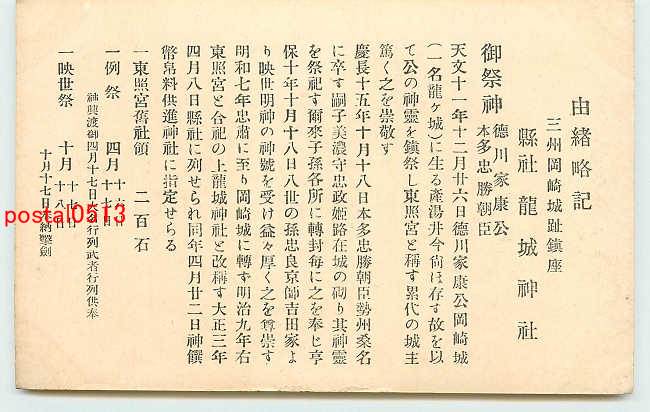 由緒略記
三州岡崎城趾鎭座
縣社 龍城神社
御祭神 德川家康公
本多忠勝朝臣
天文十一年十二月廿六日德川家康公岡崎城
(一名龍ヶ城)に生る產湯井今尙ほ存す故を以
て公の神靈を鎭祭し東照宮と稱す累代の城主
篤く之を崇敬す
慶長十五年十月十八日本多忠勝朝臣勢州桑名
に卒す嗣子美濃守忠政姫路在城の砌り其神靈
を祭祀す爾來子孫各所に轉封每に之を奉じ享
保十年十月十八日八世の孫忠良京師吉田家よ
り映世明神の神號を受け益々厚く之を尊崇す
明和七年忠肅に至り岡崎城に轉ず明治九年右
東照宮と合祀の上龍城神社と改稱す大正三年
四月八日縣社に列せられ同年四月廿二日神饌
幣帛料供進神社に指定せらる
一東照宮舊社領 二百石
一例祭 四月 十六日
十七日
神輿渡御四月十七日 行列武者行列供奉
一映世祭 十月 十七日
十八日
十月十七日 納擊劍
postal0513